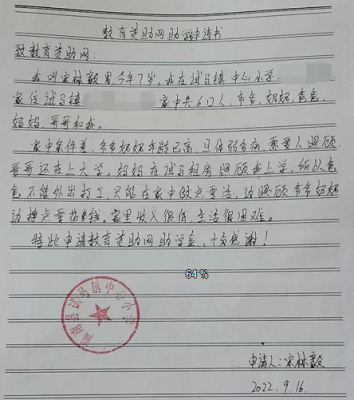 教育资助网助学申请书
致教育资助网:
我叫宋林毅男,今年7岁,我在试马镇中心小学
家住试马镇 家中共6口人,爷爷、奶奶、爸爸、
妈妈、哥哥和我。
家中条件差,爷爷奶奶年龄已高,且体弱多病,需要人照顾
哥哥还在上大学。妈妈在试马租房照顾我上学,所以爸
爸不能外出打工,只能在家中做点零活,边照顾爷爷奶奶
边挣点零花钱。家里收入很低,生活很困难。
特此申请教育资助网助学金,十分感谢!
64 %
商南县试马镇中心小学
申请人:宋林毅
2022.9.16.